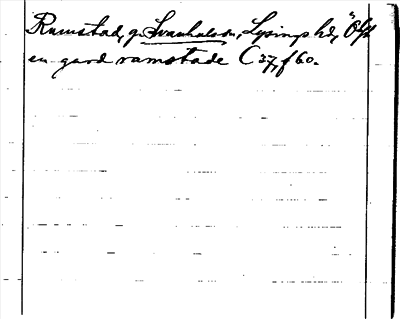 Ramstad, g. Svanhals sn, Lysings hd, Ög
en gard ramstade C 37, f 60.